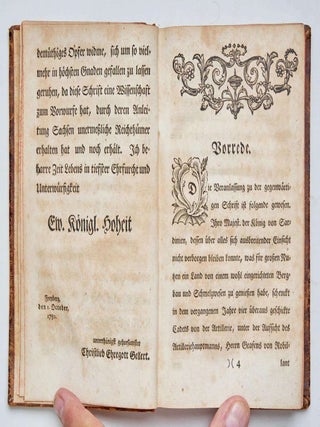 demüthiges Opfer widme, sich um so viel-
mehr in höchsten Gnaden gefallen zu lassen
geruhen, da diese Schrift eine Wissenschaft
zum Vorwurfe hat, durch deren Anlei-
tung Sachsen unermeßliche Reichthümer
erhalten hat und noch erhält. Ich be-
harre Zeit Lebens in tiefster Ehrfurcht und
Unterwürfigkeit
Ew. Königl. Hoheit
Freyberg,
den 1. October,
1750.
unterthänigst gehorsamster
Christlieb Ehregott Gellert.
Vorrede.
Die Veranlassung zu der gegenwärti-
gen Schrift ist folgende gewesen.
Ihro Majest. der König von Sar-
dinien, dessen über alles sich ausbreitender Einsicht
nicht verborgen bleiben konnte, was für grossen Nu-
tzen ein Land von einem wohl eingerichteten Berg-
bau und Schmelzwesen zu geniesen habe, schickte
in dem vergangenen Jahre vier überaus geschickte
Cadets von der Artillerie, unter der Aufsicht des
Artilleriehauptmanns, Herrn Grafens von Robil-
)( 4
lant